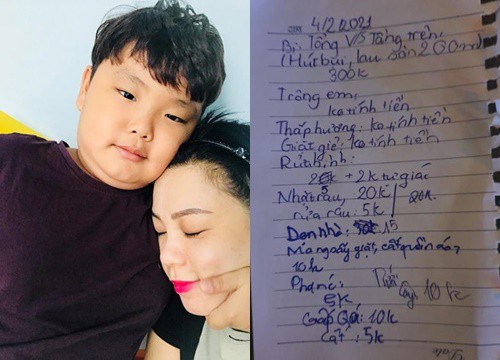 4/2/2021
Bi: Tổng VS Tầng trên,
(Hút bụi, lau sàn 2
300k
Trông em,
ko tính tiền
Thắp hương: ko tính tiền
Giặt giẻ: ko tính tiền
Rửa bình:
+ 2k tự giác
Nhặt rau, 20k
rửa rau: 5k
Dọn nhà: 15
Mang máy giặt, cất quần áo,
10k
Pha nước:
5k
Tưới cây 10k
Gấp QA: 10k
Cất: 5k